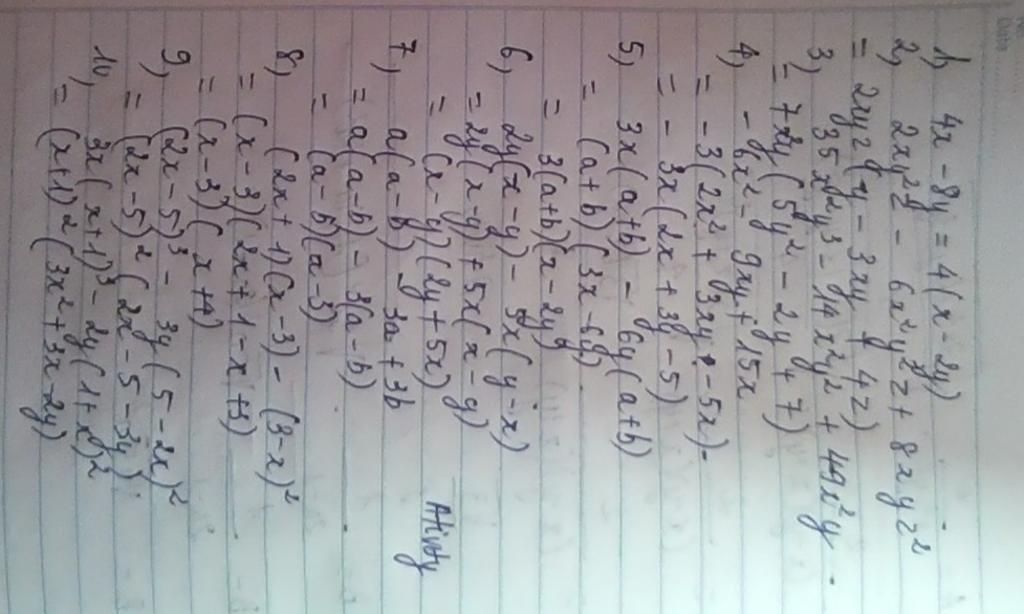 1, 4x - 8y = 4(x - 2y)
2, 2xy²z - 6x²y²z + 8xyz²
= 2xyz(y - 3xy + 4z)
3, 35x²y³ - 14x²y² + 49x²y
= 7x²y(5y² - 2y + 7)
4, - 6x² - 9xy + 15x
= -3(2x² + 3xy - 5x)
= - 3x(2x + 3y - 5)
5, 3x(a+b) - 6y(a+b)
= (a+b)(3x - 6y)
= 3(a+b)(x - 2y)
6, 2y(x - y) - 5x(y - x)
= 2y(x - y) + 5x(x - y)
= (x - y)(2y + 5x)
7, a(a - b) - 3a + 3b
= a(a - b) - 3(a - b)
= (a - b)(a - 3)
8, (2x + 1)(x - 3) - (3 - x)²
= (x - 3)(2x + 1 - x + 3)
= (x - 3)(x + 4)
9, (2x - 5)³ - 3y(5 - 2x)²
= (2x - 5)²(2x - 5 - 3y)
10, 3x(x+1)³ - 2y(1+x)²
= (x+1)²(3x² + 3x - 2y)